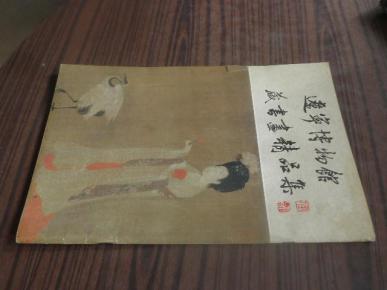 遼寧博物館
藏書畫精品集